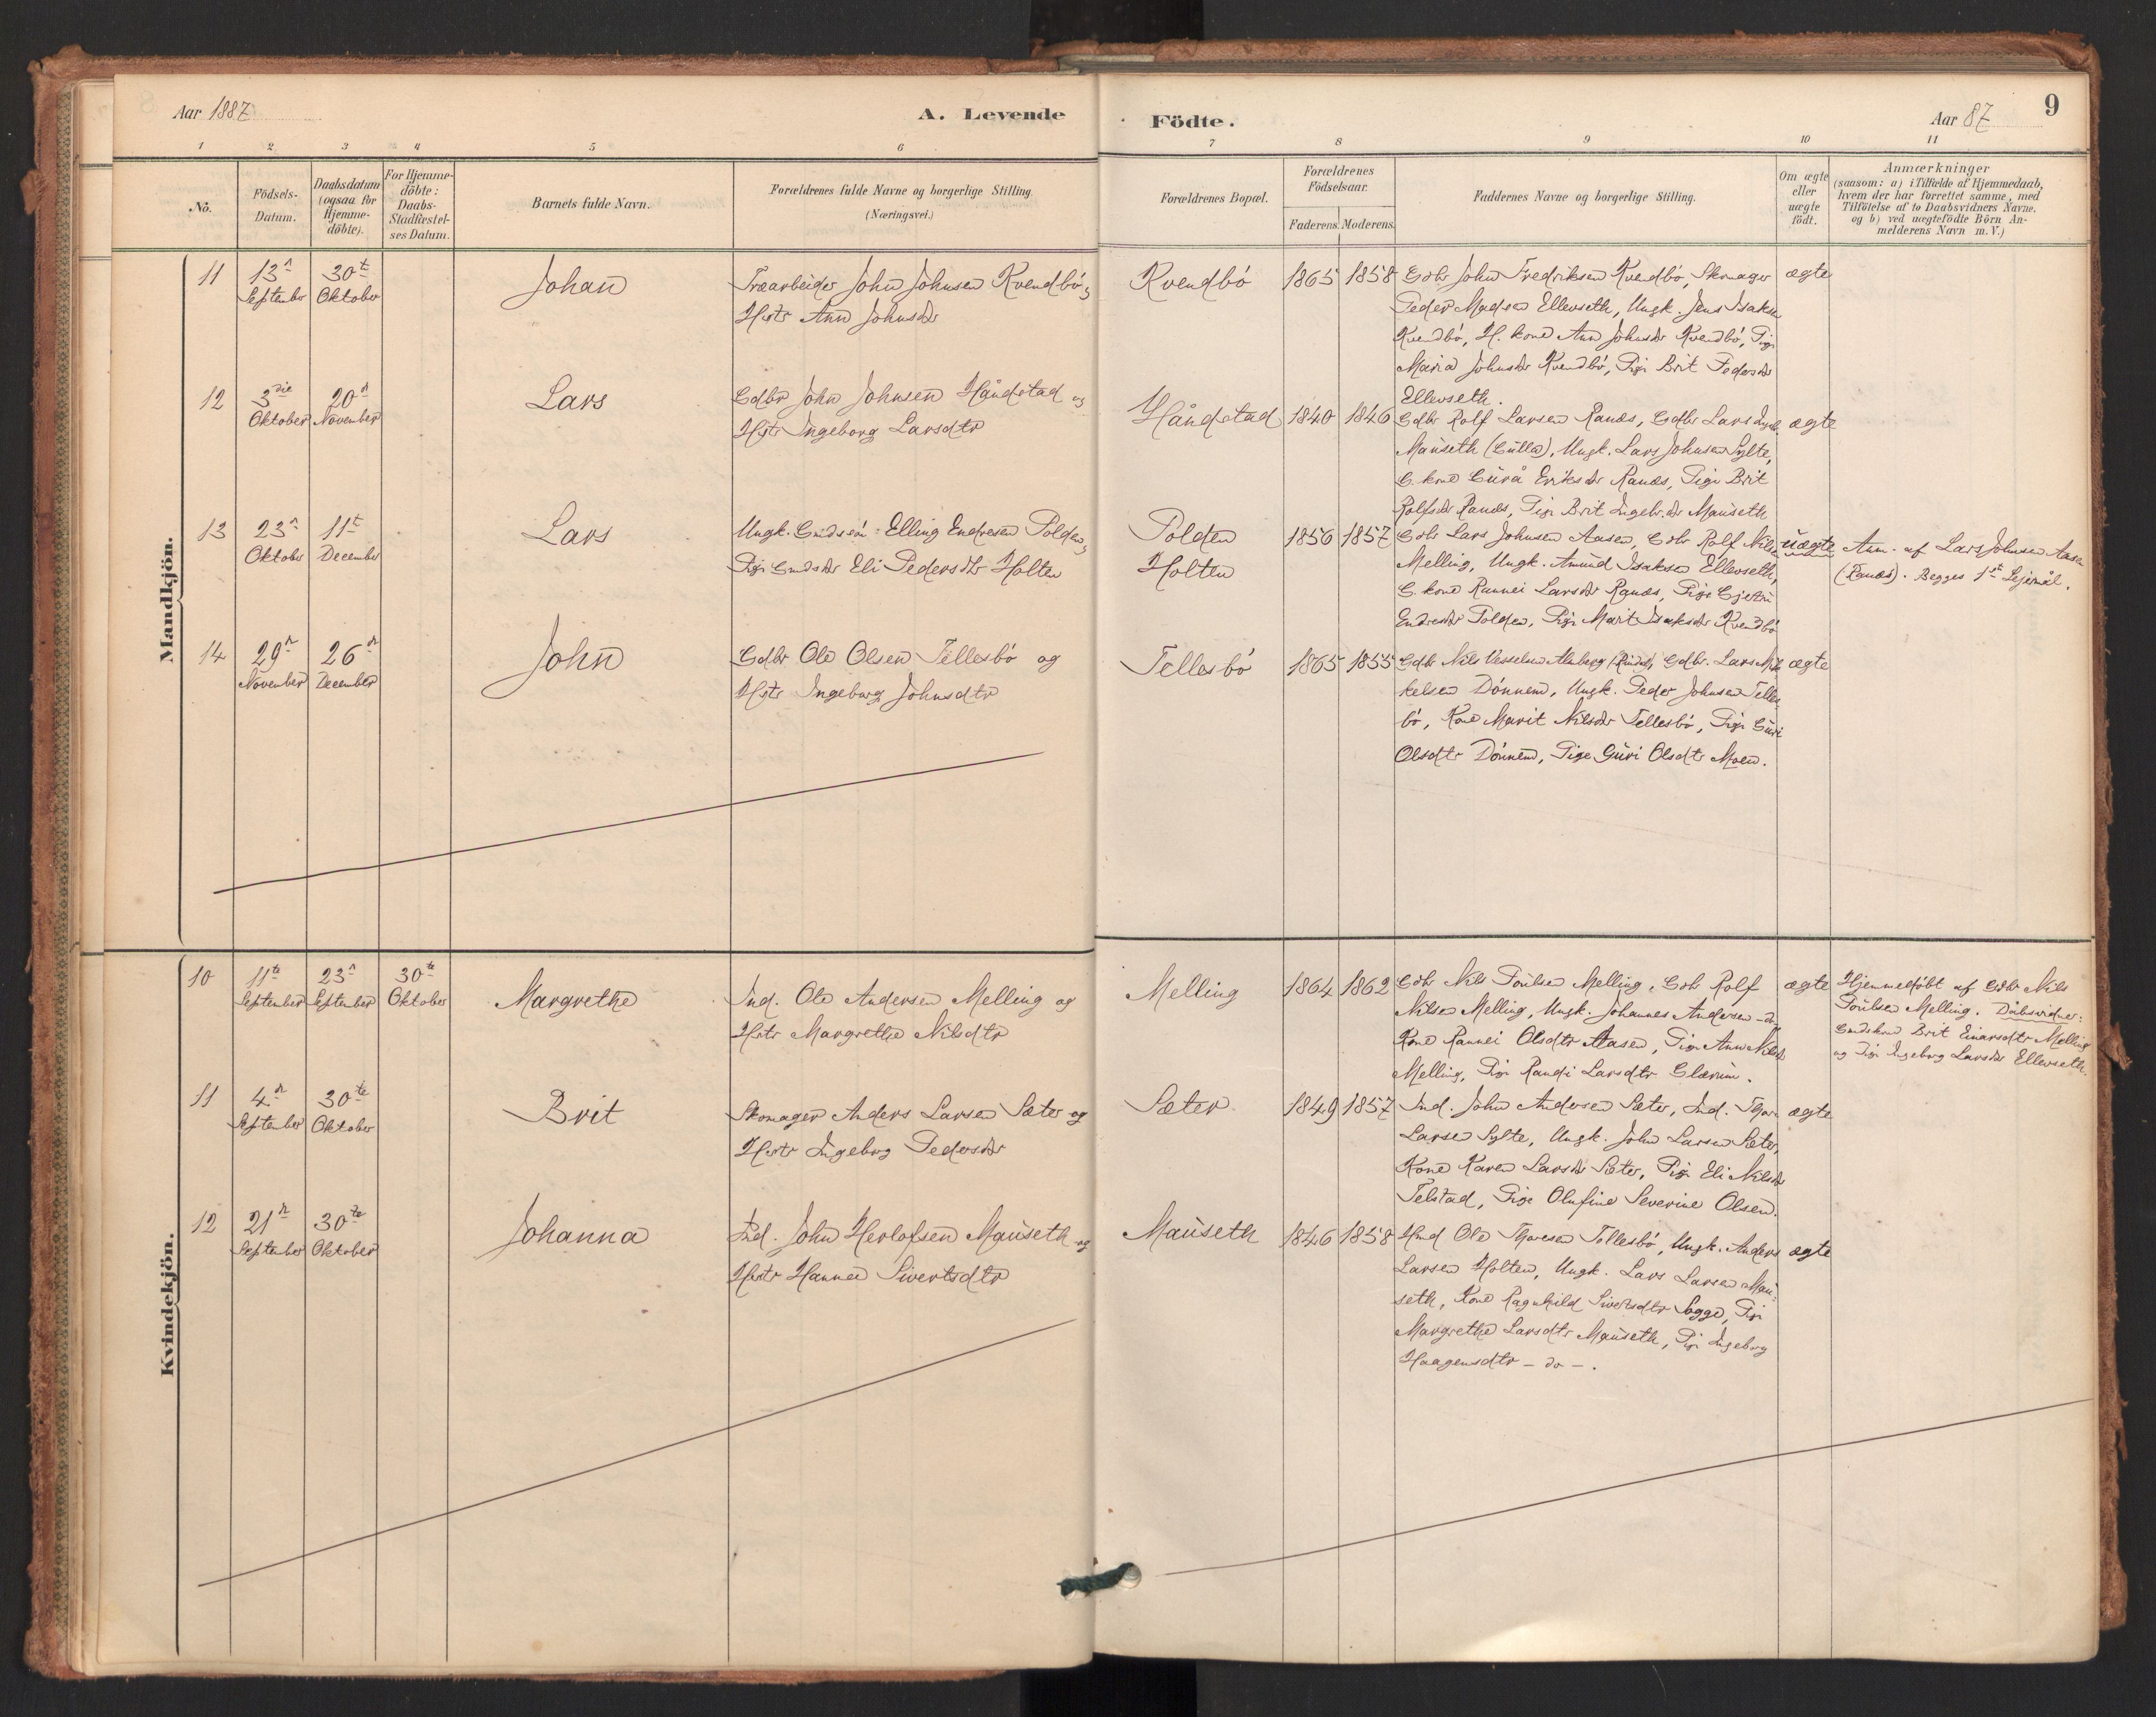 Aar 1887
A. Levende
Födte.
Aar 87
9
1 2 3 4 5 6 7 8 9 10 11
No.
Födsels-
Datum.
Daabsdatum
(ogsaa for
Hjemme-
döbte).
For Hjemme-
döbte:
Daabs-
Stadfæstel-
ses Datum.
Barnets fulde Navn.
Forældrenes fulde Navne og borgerlige Stilling.
(Næringsvei.)
Forældrenes Bopæl.
Forældrenes
Födselsaar.
Faderens. Moderens.
Faddernes Navne og borgerlige Stilling.
Om ægte
eller
uægte
födt.
Anmærkninger
(saasom: a) i Tilfælde af Hjemmedaab,
hvem der har forrettet samme, med
Tilföielse af to Daabsvidners Navne.
og b) ved uægtefödte Börn An-
melderens Navn m. V.)
Mandkjön.
11
13n
September
30te
Oktober
Johan
Træarbeider John Johnsen Kvendbö og
Hstr Ann Johnsdr
Kvendbö
1865 1858
Gdbr John Fredriksen Kvendbö, Skomager
Peder Madsen Ellevseth, Ungk. Jens Isaksen
Kvendbö, H. kone Ann Johnsdr Kvendbö, Pige
Maria Johnsdr Kvendbö, Pige Brit Pedersdr
Ellevseth.
ægte
12
3die
Oktober
20n
November
Lars
Gdbr John Johnsen Håndstad og
Hstr Ingeborg Larsdtr
Håndstad
1840 1846
Gdbr Rolf Larsen Ranæs, Gdbr Lars Ingebr.
Mauseth (Gülla), Ungk. Lars Johnsen Sylte,
G. kone Gürå Eriksdr Ranæs, Pige Brit
Rolfsdr Ranæs, Pige Brit Ingebr.dr Mauseth
ægte
13
23n
Oktober
11te
December
Lars
Ungk. Gmdsön Elling Endresen Polden og
Pige Gmdsdr Eli Pedersdtr Holten
Polden
Holten
1856 1857
Gdbr Lars Johnsen Aasen, Gdbr Rolf Nilsen
Melling, Ungk. Amund Isaksen Ellevseth,
G. kone Rannei Larsdr Ranæs, Pige Gjertrü
Endresdr Polden, Pige Marit Isaksdr Kvendbö
üægte
Anm. af Lars Johnsen Aasen
(Ranæs). Begges 1ste Lejermål.
14
29n
November
26n
December
John
Gdbr Ole Olsen Tellesbö og
Hstr Ingeborg Johnsdtr
Tellesbö
1865 1855
Gdbr Nils Vesselsen Almberg (Rindal), Gdbr. Lars Mik-
kelsen Dönnem, Ungk. Peder Johnsen Telles-
bö, Kone Marit Nilsdr Tellesbö, Pige Güri
Olsdtr Dönnem, Pige Güri Olsdtr Moen.
ægte
Kvindekjön.
10
11te
September
23n
September
30te
Oktober
Margrethe
Ind. Ole Andersen Melling og
Hstr Margrethe Nilsdtr
Melling
1864 1862
Gdbr Nils Poülsen Melling, Gdbr Rolf
Nilsen Melling, Ungk. Johannes Andersen - do
Kone Rannei Olsdtr Aasen, Pige Ann Nilsdr
Melling, Pige Randi Larsdtr Glærüm.
ægte
Hjemmedöbt af Gdbr Nils
Poülsen Melling. Dåbsvidner:
Gmdskone Brit Einarsdtr Melling
og Pige Ingeborg Larsdr Ellevseth.
11
4n
September
30te
Oktober
Brit
Skomager Anders Larsen Sæter og
Hstr Ingeborg Pedersdr
Sæter
1849 1857
Ind. John Andersen Sæter, Ind. Thore
Larsen Sylte, Ungk. John Larsen Sæter,
Kone Karen Larsdr Sæter, Pige Eli Nilsdr
Telstad, Pige Olufine Severine Olsen.
ægte
12
21n
September
30te
Oktober
Johanna
Ind. John Herlofsen Mauseth og
Hstr Hanna Sivertsdtr
Mauseth
1846 1858
Hmd Ole Thoresen Tellesbö, Ungk. Anders
Larsen Holten, Ungk. Lars Larsen Mau-
seth, Kone Ragnhild Sivertsdtr Sogge, Pige
Margrethe Larsdtr Mauseth, Pige Ingeborg
Haagensdtr - do - .
ægte